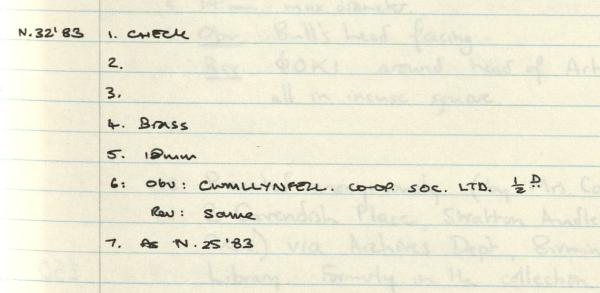 N.32'83 1. CHECK
2.
3.
4. Brass
5. 18mm
6: Obv: CWMLLYNFELL. CO-OP. SOC. LTD. ½ D.
Rev: Same
7. As N.25'83